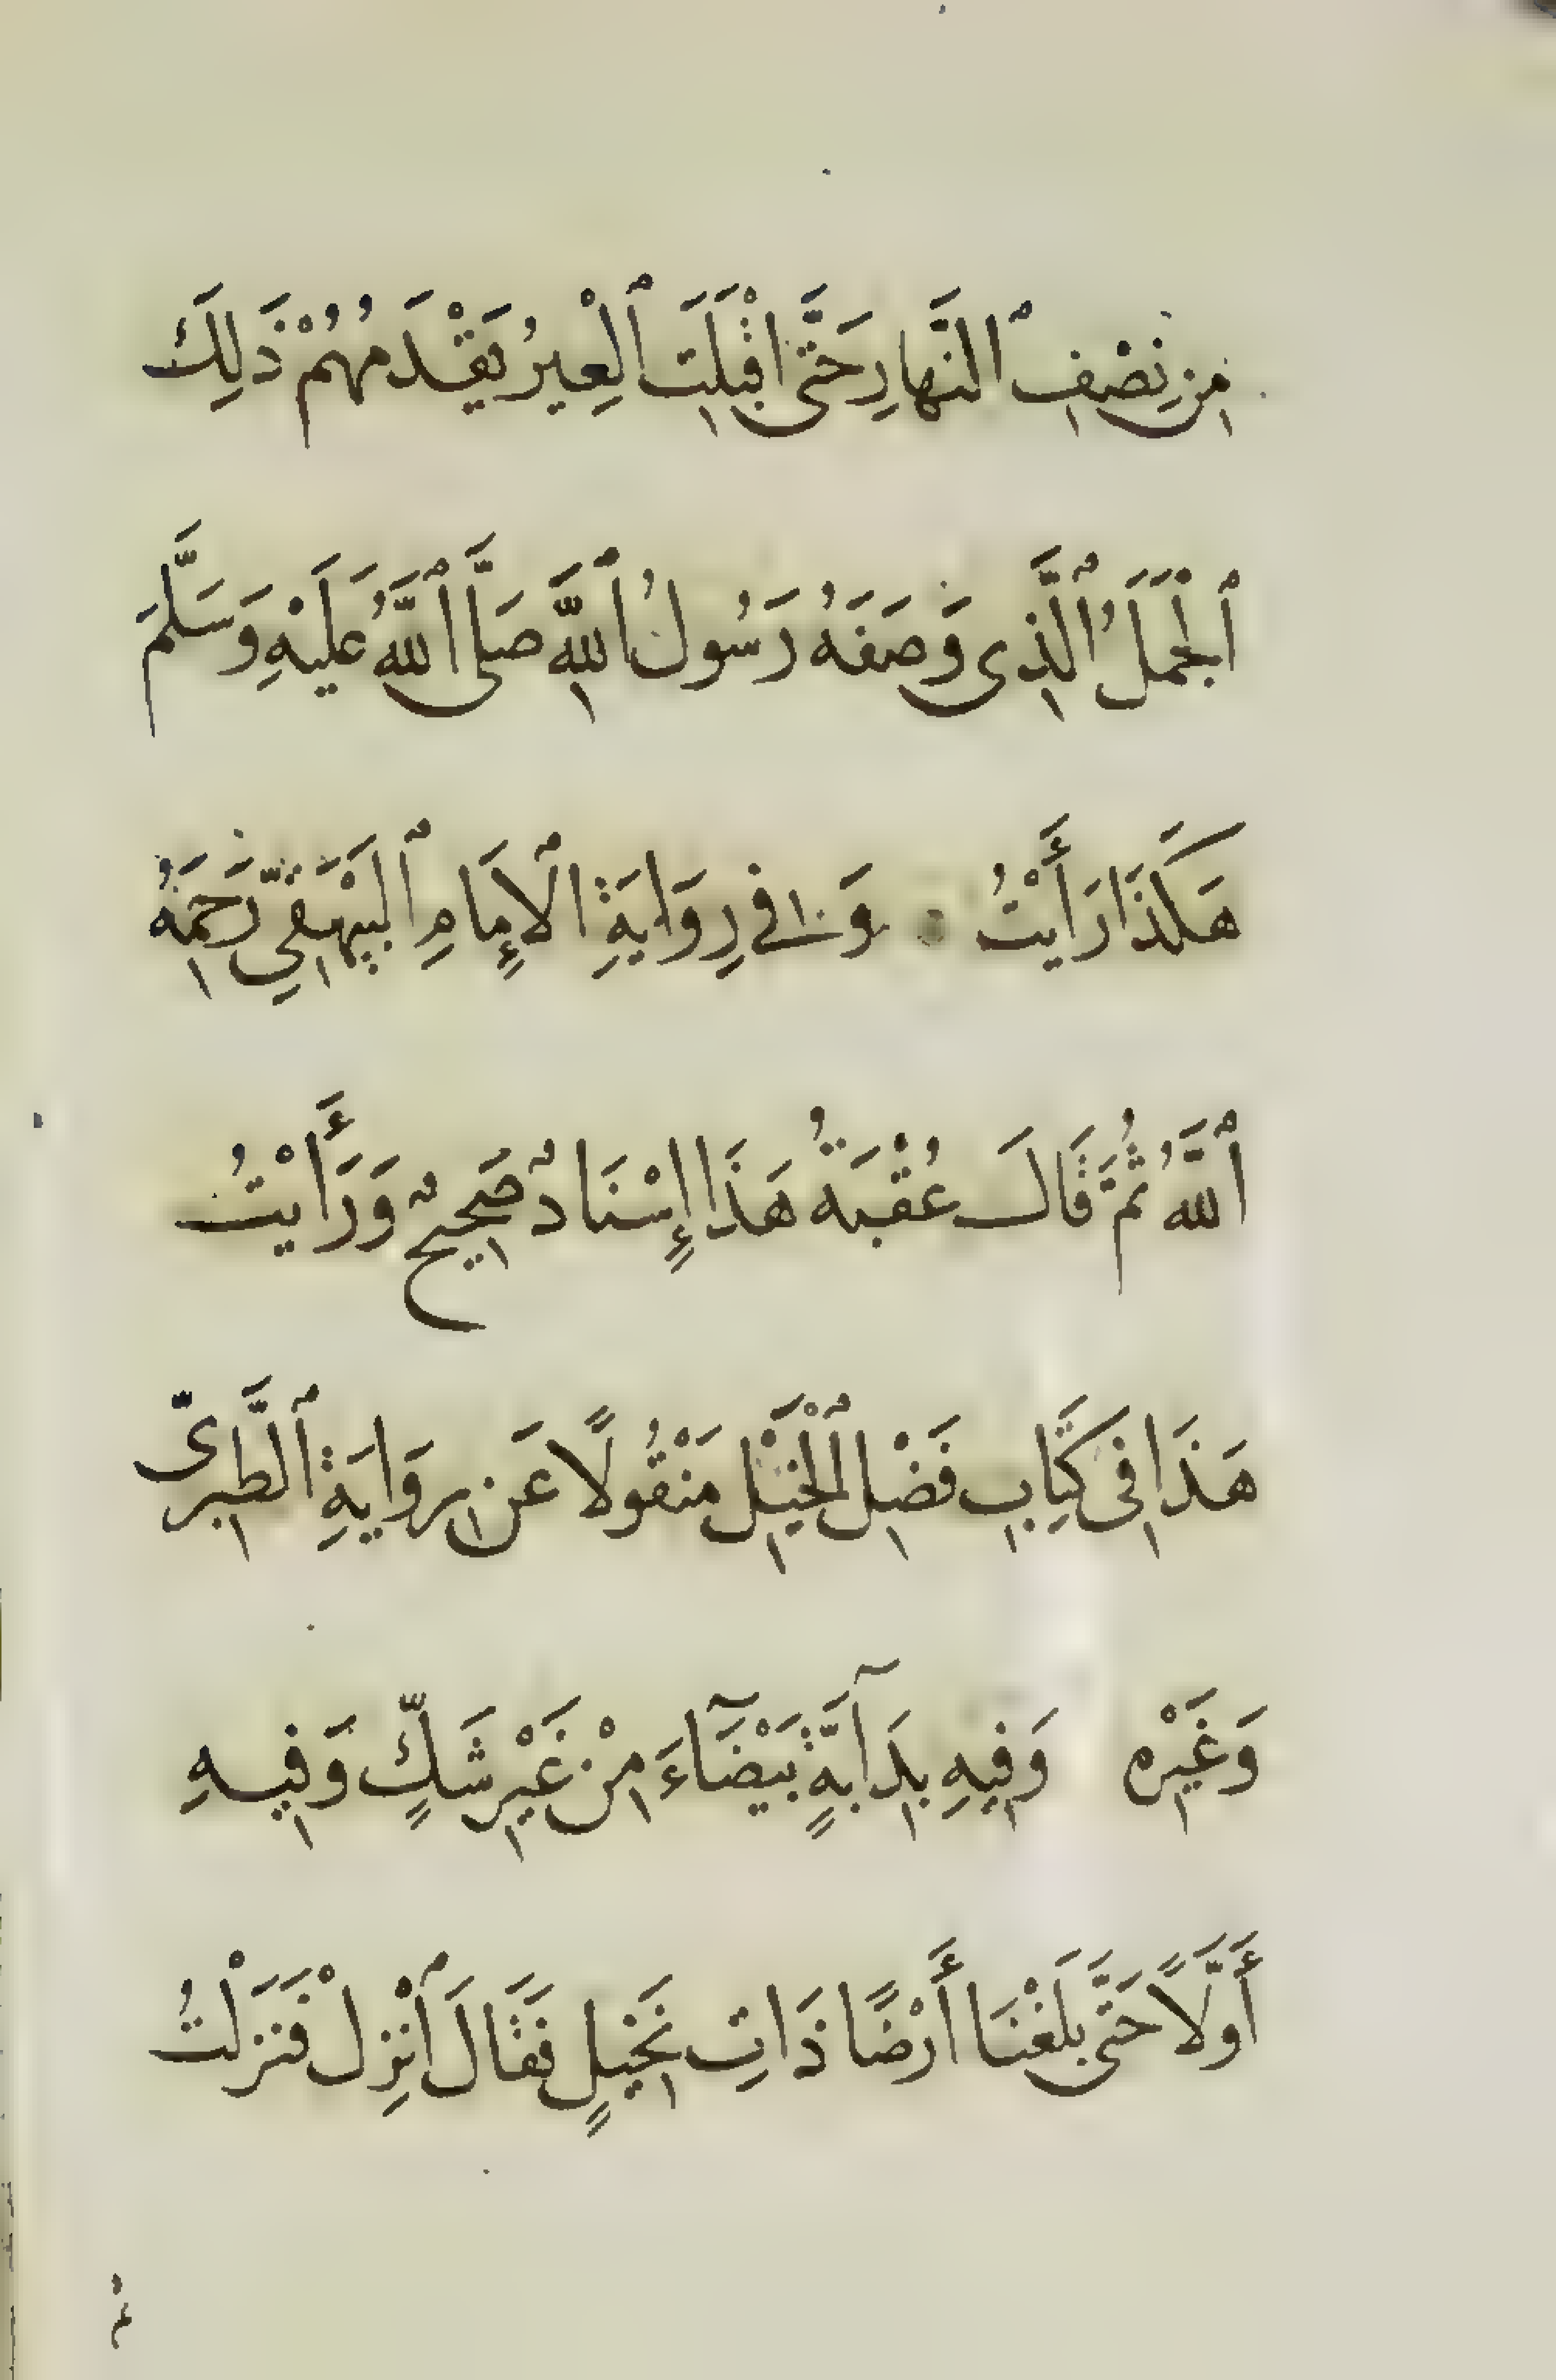 مِن نِصْفِ ٱلنَّهارِ حَتَّى اقْبَلَتِ ٱلْعِيرُ يَقْدَمُهُمْ ذَلِكَ
ٱلْجَمَلُ ٱلَّذِى وَصَفَهُ رَسُولُ ٱللَّهِ صَلَّى ٱللَّهُ عَلَيْهِ وَسَلَّمَ
هَكَذَا رَأَيْتُ وَ فِي رِوَايَةِ ٱلإِمَامِ ٱلبَيْهَقِيِّ رَحِمَهُ
ٱللَّهُ ثُمَّ قَالَ عُقْبَةُ هَذَا إِسْنَادٌ صَحِيحٌ وَرَأَيْتُ
هَذَا فِى كِتَابِ فَضْلِ ٱلْخَيْلِ مَنْقُولًا عَن رِوَايَةِ ٱلطَّبَرِىّ
وَغَيْرِه وَفِيهِ بِدَآبَّةٍ بَيْضَآءَ مِنْ غَيْرِ شَكٍّ وَفِيهِ
أَوَّلًا حَتَّى بَلَغْنَا أَرْضًا ذَاتِ نَخِيلٍ فَقَالَ ٱنْزِلْ فَنَزَلْتُ